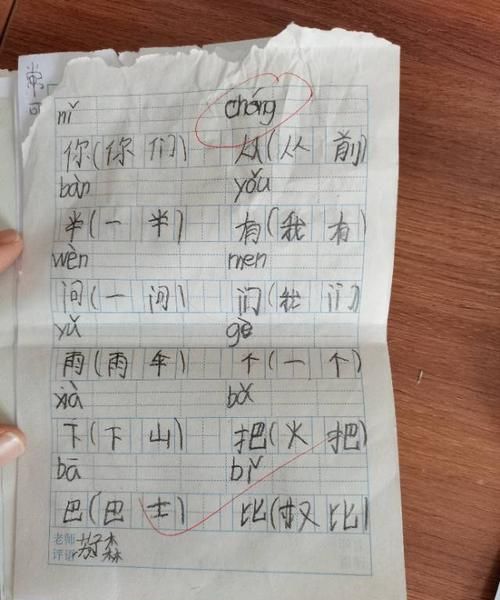 常
可
nǐ cháng
你(你们) 从(从前)
bàn yǒu
半(一半) 有(我有)
wèn men
问(一问) 们(我们)
yǔ gè
雨(雨伞) 个(一个)
xià bǎ
下(下山) 把(火把)
bā bǐ
巴(巴士) 比(对比)
老师
评语
森